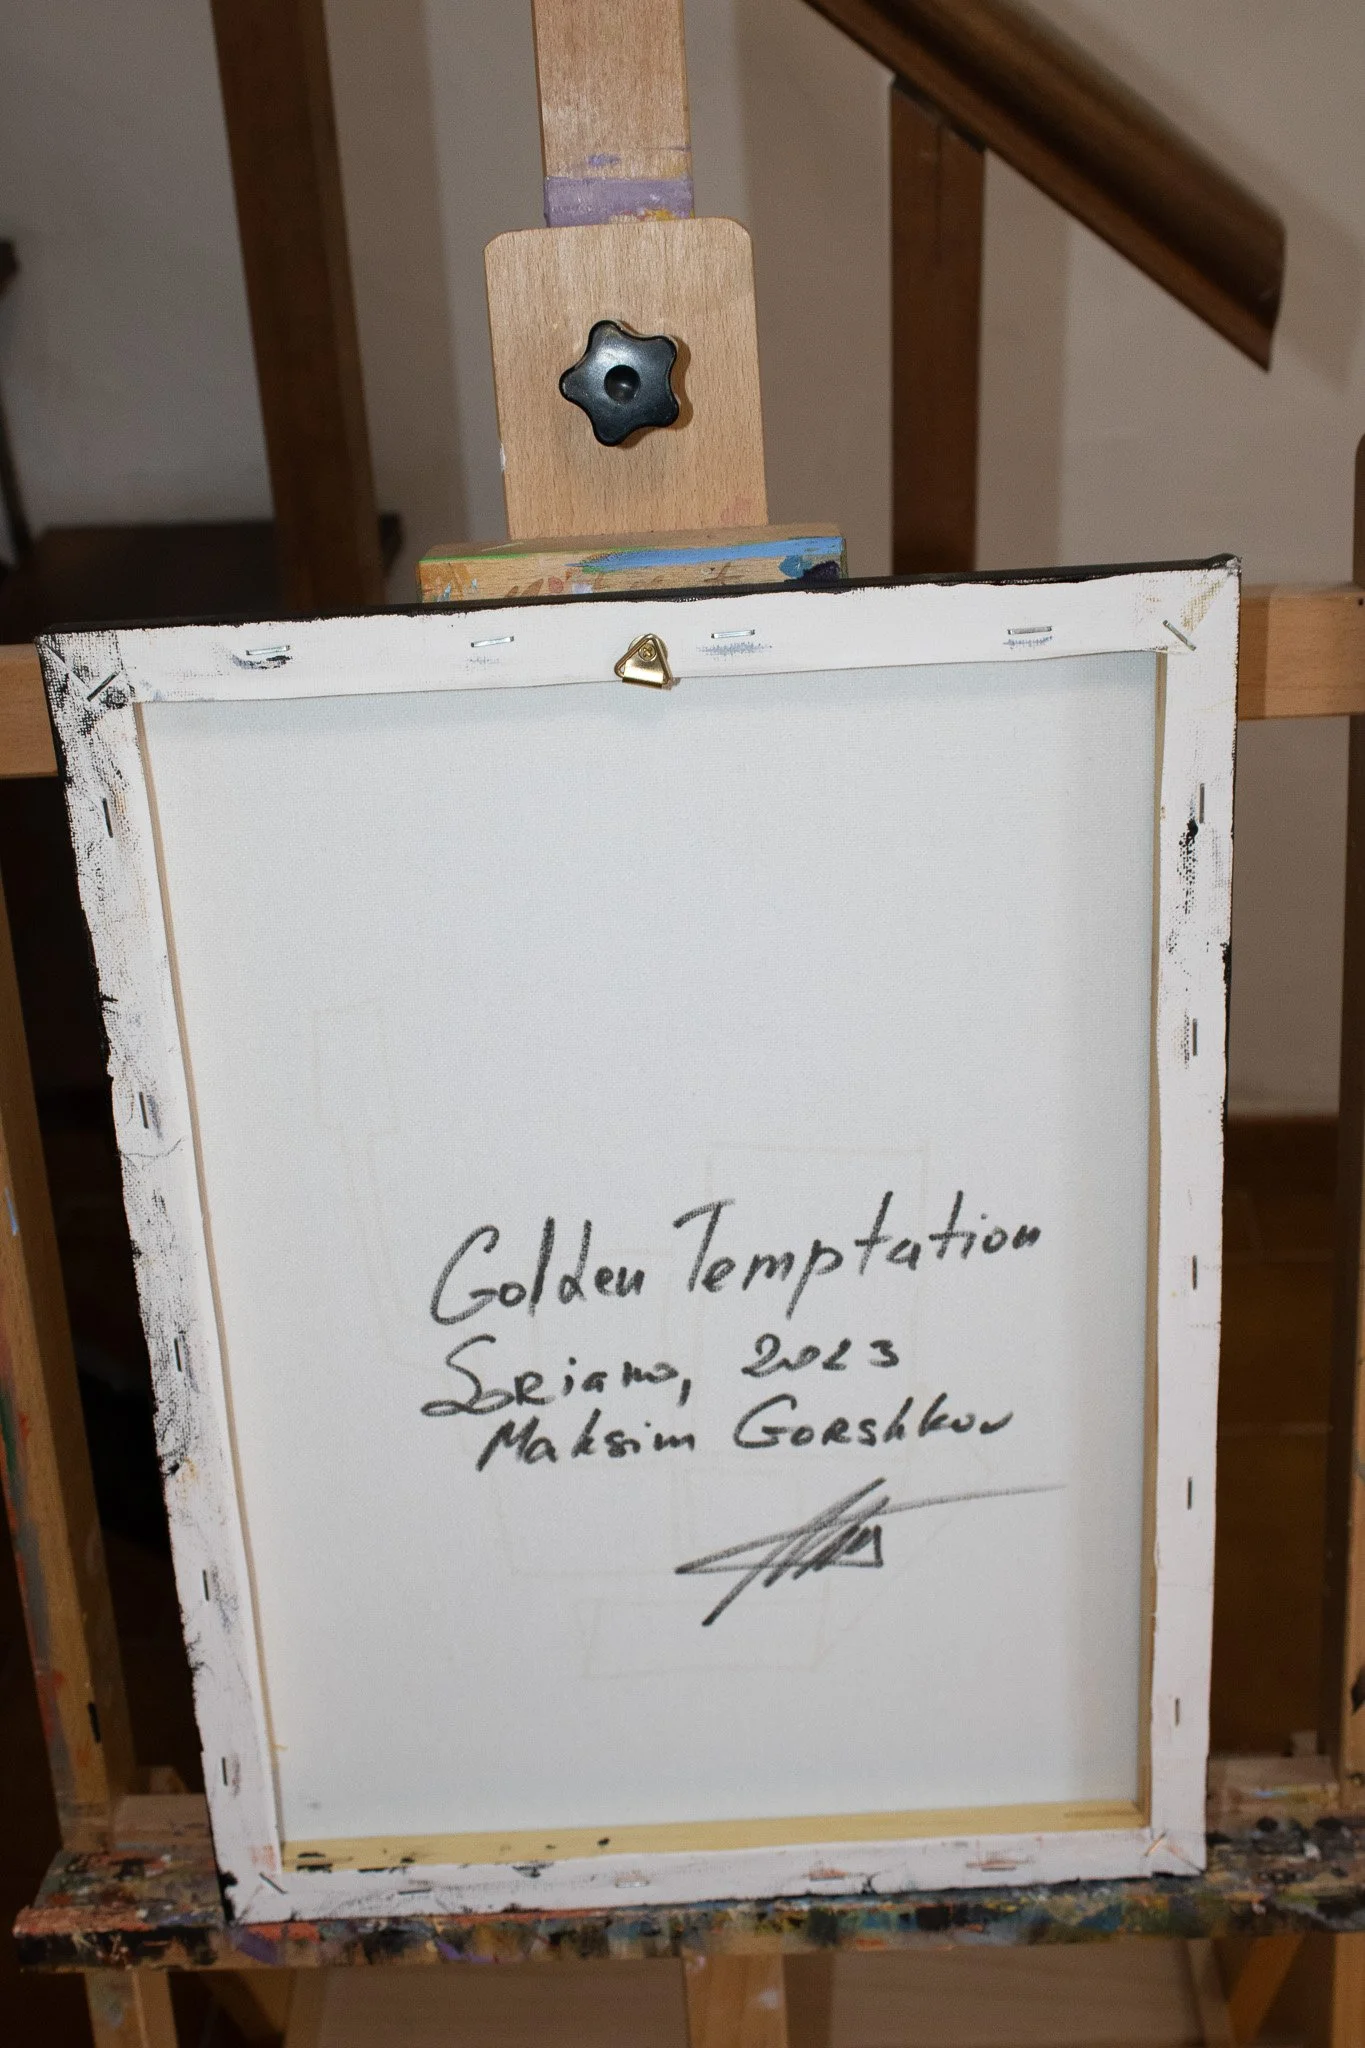 Golden Temptation
Soriano, 2023
Maksim Gorshkov